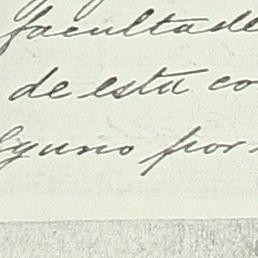 facultade
de esta co
lguno por